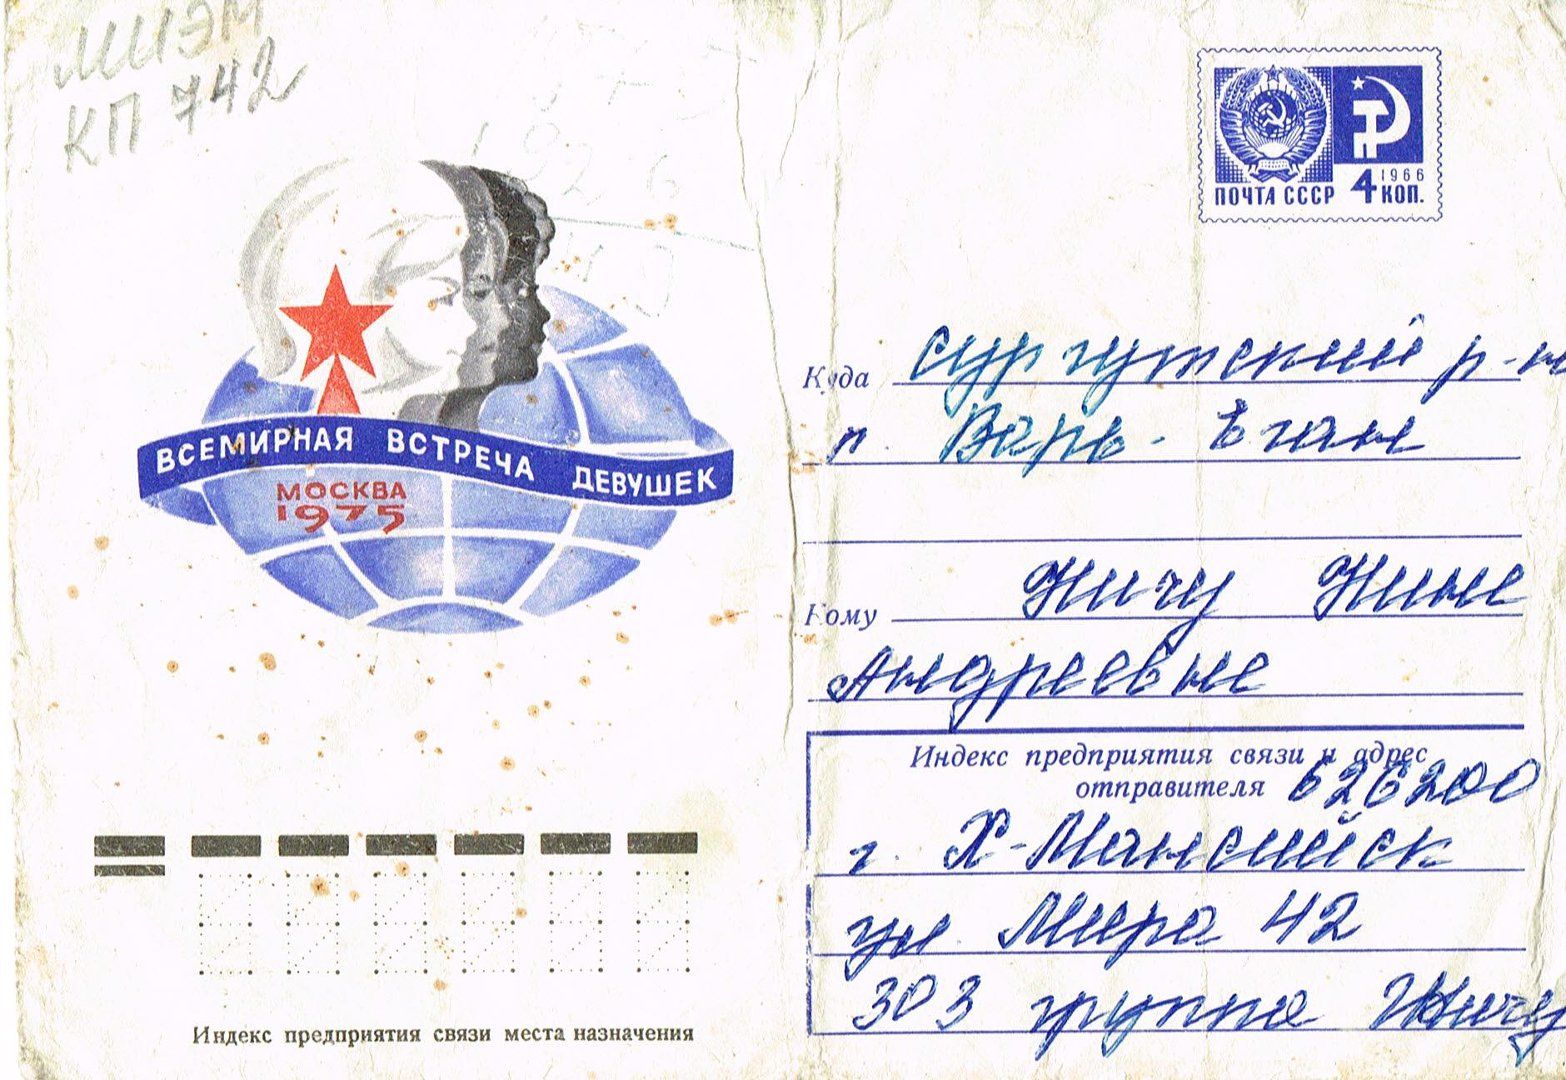 МИЭМ
КП 742
ПОЧТА СССР
1966
4 КОП.
ВСЕМИРНАЯ ВСТРЕЧА ДЕВУШЕК
МОСКВА
1975
Куда Сургутский р-н
п. Варь-Ёган
Кому Айпину Нине
Андреевне
Индекс предприятия связи и адрес
отправителя 626200
г. Х-Мансийск
ул. Мира 42
303 группа
Индекс предприятия связи места назначения